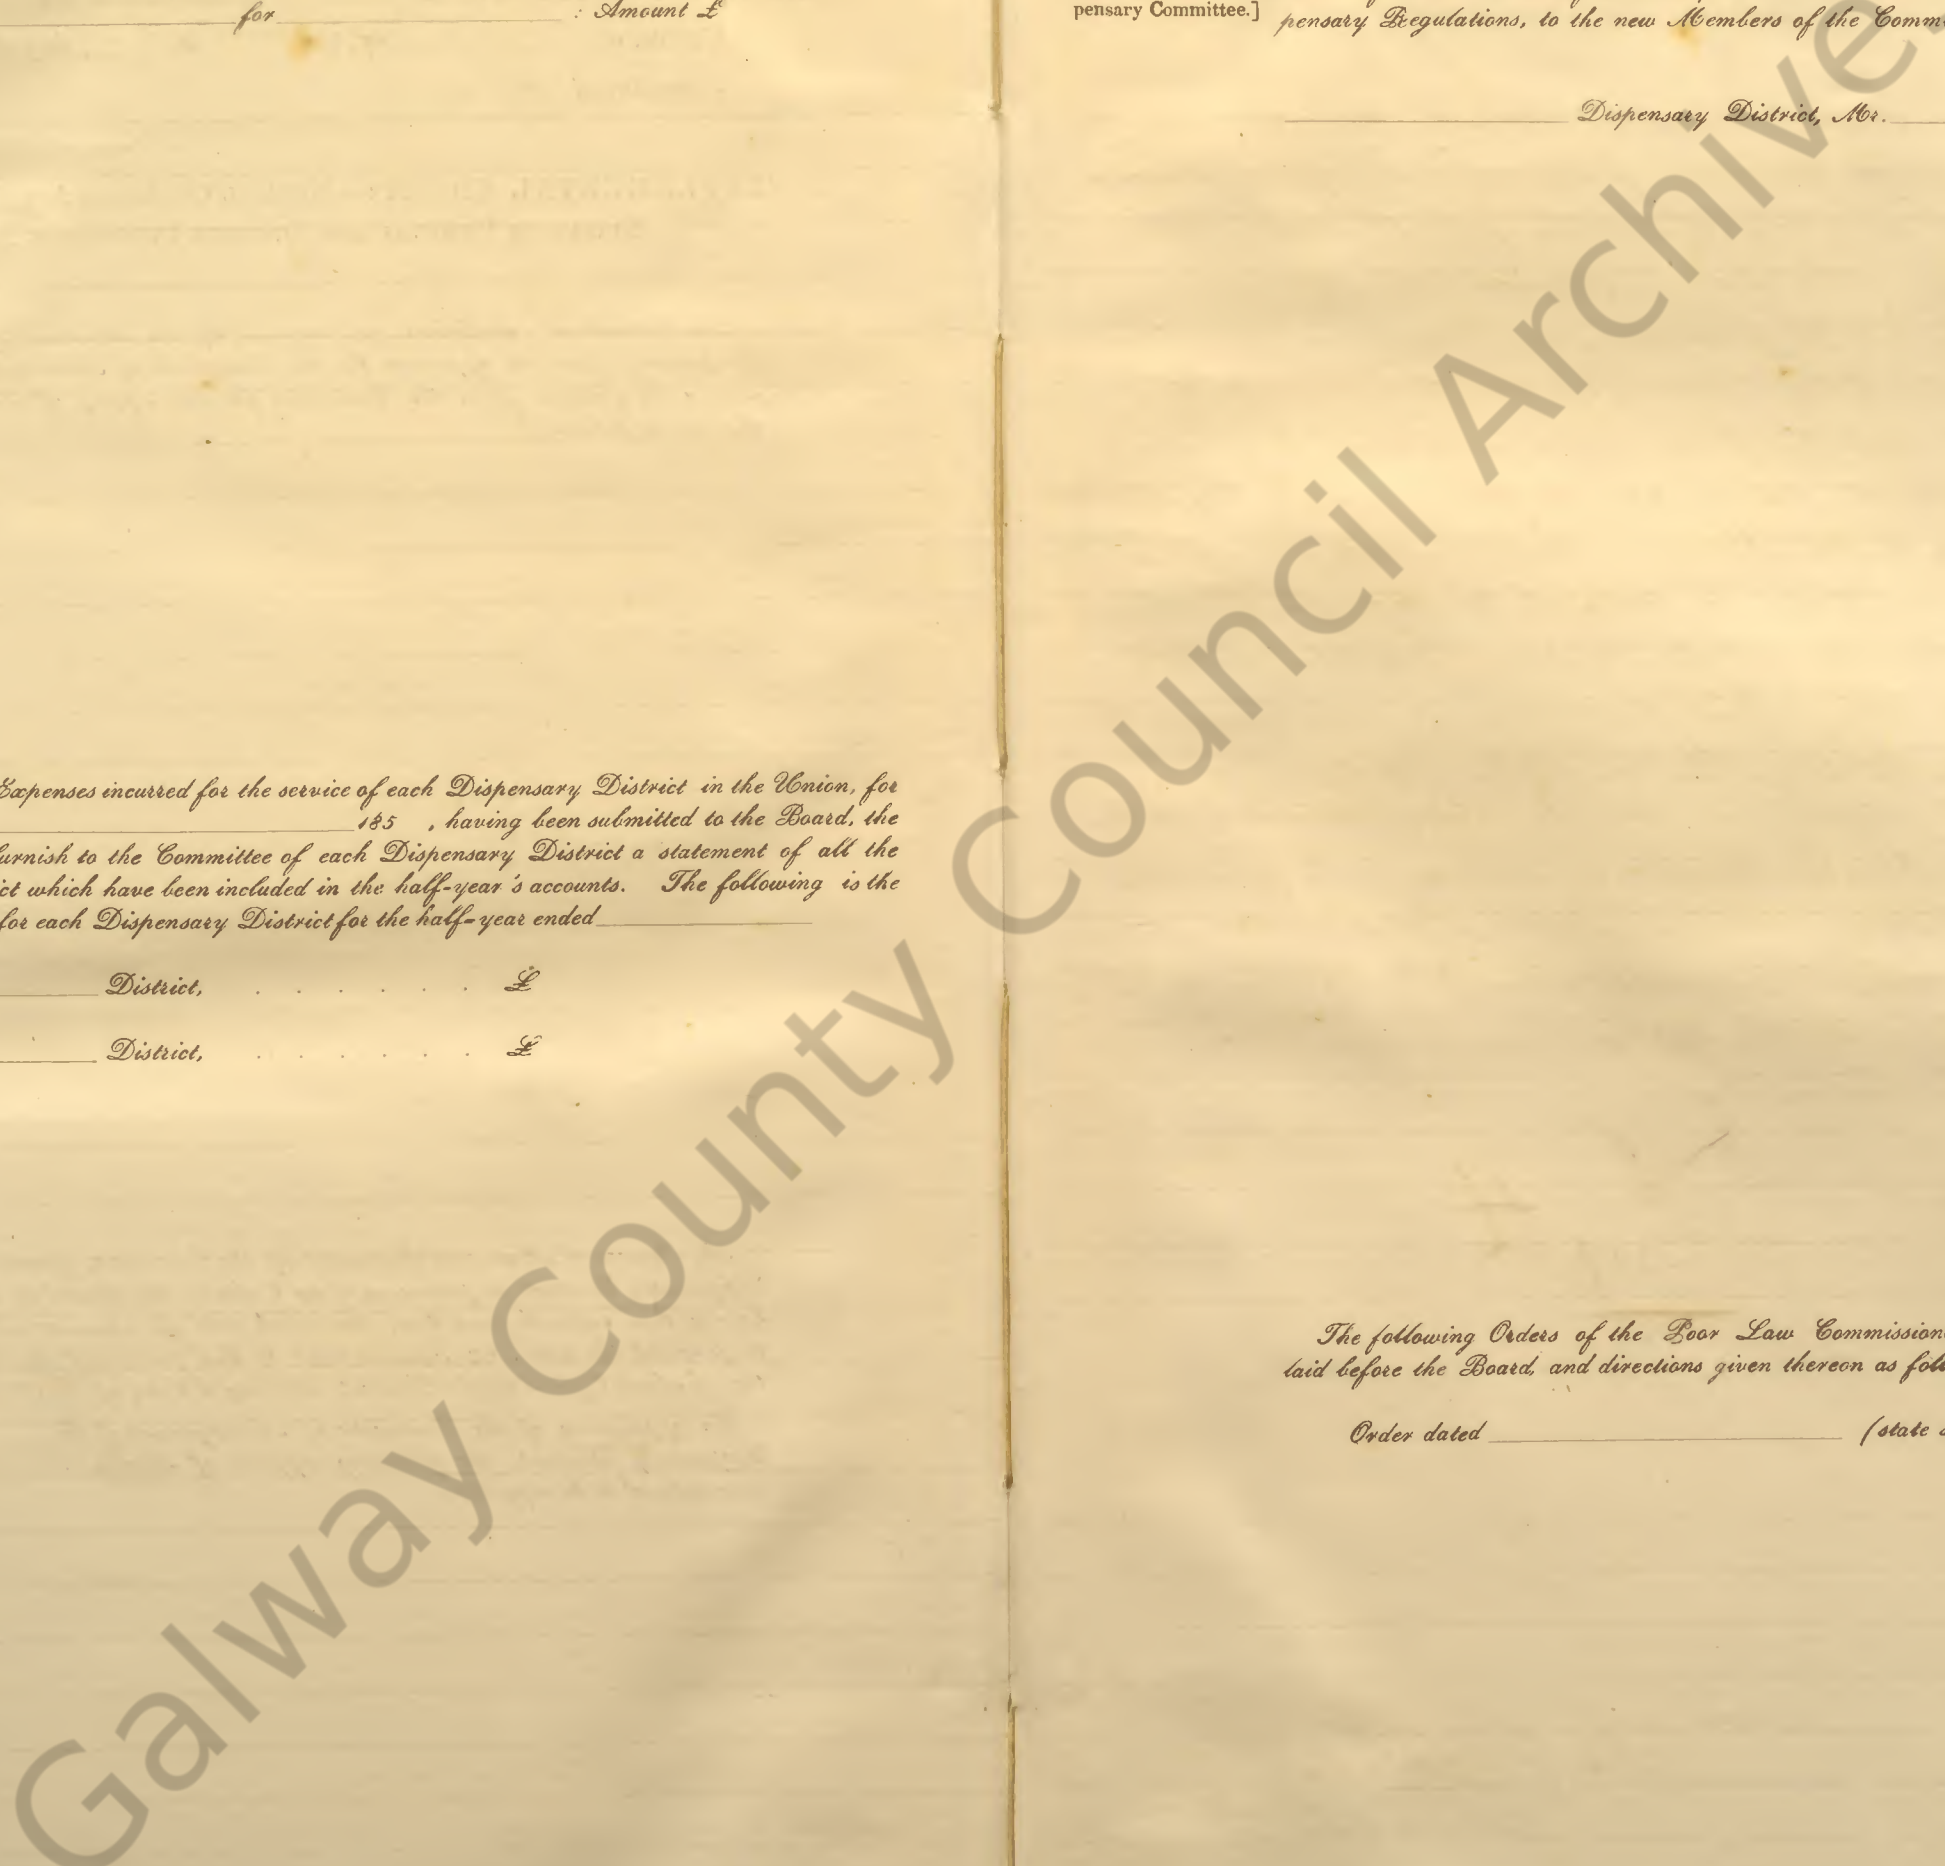 for : Amount £
Expenses incurred for the service of each Dispensary District in the Union, for
185 , having been submitted to the Board, the
urnish to the Committee of each Dispensary District a statement of all the
ct which have been included in the half-year's accounts. The following is the
for each Dispensary District for the half-year ended
District, . . . . . . £
District, . . . . . . £
pensary Committee.]
pensary Regulations, to the new Members of the Comm
Dispensary District, Mr.
The following Orders of the Poor Law Commission
laid before the Board, and directions given thereon as foll
Order dated (state
Galway County Council Archive